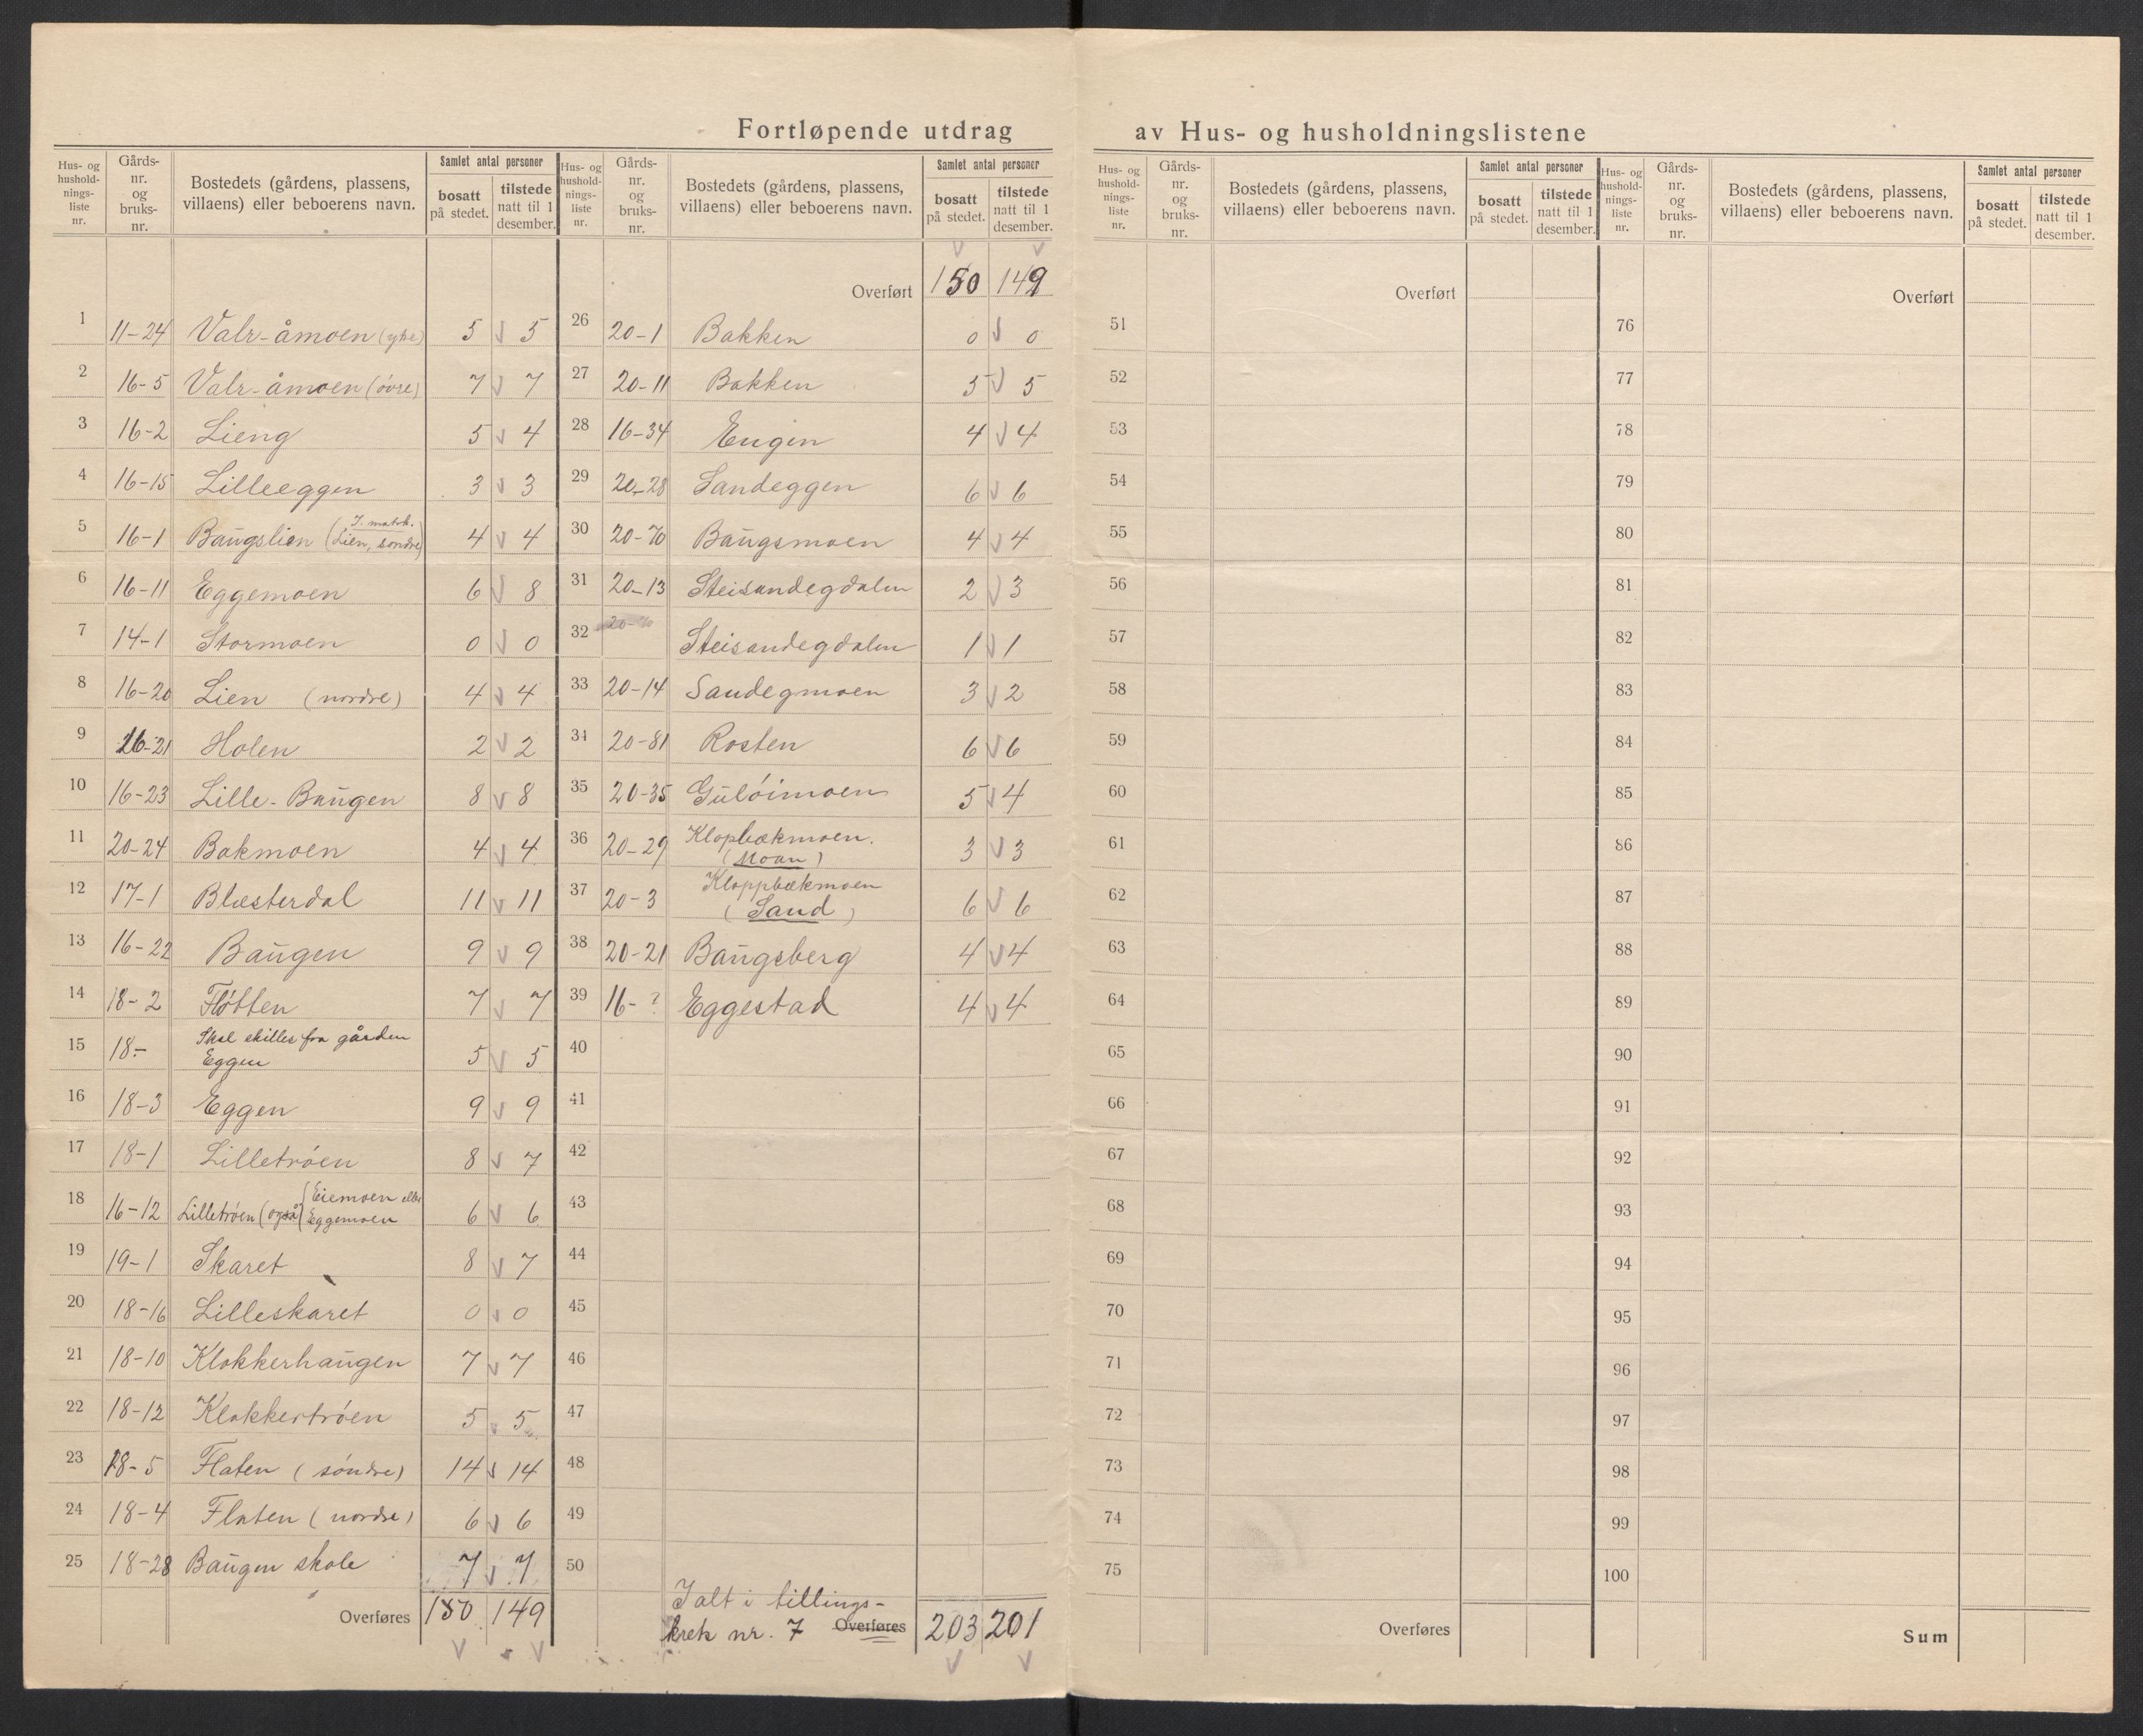 Fortløpende utdrag av Hus- og husholdningslistene
Hus- og husholdningsliste nr. | Gårds-nr. og bruks-nr. | Bostedets (gårdens, plassens, villaens) eller beboerens navn. | Samlet antal personer | bosatt på stedet. | tilstede natt til 1 desember.
1 11-24 Valr-åmoen 5 v 5
2 16-5 Valr-åmoen (övre) 7 v 7
3 16-2 Lieng 5 v 4
4 16-15 Lilleeggen 3 v 3
5 16-1 Baŭgslien (I. matrk. Lien, søndre) 4 v 4
6 16-11 Eggemoen 6 v 8
7 14-1 Stormoen 0 v 0
8 16-20 Lien (nordre) 4 v 4
9 16-21 Holen 2 v 2
10 16-23 Lille-Baŭgen 8 v 8
11 20-24 Bakmoen 4 v 4
12 17-1 Blæsterdal 11 v 11
13 16-22 Baŭgen 9 v 9
14 18-2 Fløtten 7 v 7
15 18- Skal skilles fra gården
Eggen 5 v 5
16 18-3 Eggen 9 v 9
17 18-1 Lilletróen 8 v 7
18 16-12 Lilletróen (også Eiemoen eller
Eggemoen 6 v 6
19 19-1 Skaret 8 v 7
20 18-16 Lilleskaret 0 v 0
21 18-10 Klokkerhaŭgen 7 v 7
22 18-12 Klokkertróen 5 v 5
23 18-5 Flaten (söndre) 14 v 14
24 18-4 Flaten (nordre) 6 v 6
25 18-28 Baŭgen skole 7 v 7
Overføres 150 149
v v
Hus- og husholdningsliste nr. | Gårds-nr. og bruks-nr. | Bostedets (gårdens, plassens, villaens) eller beboerens navn. | Samlet antal personer | bosatt på stedet. | tilstede natt til 1 desember.
v v
Overført 150 149
26 20-1 Bakken 0 v 0
27 20-11 Bakken 5 v 5
28 16-34 Engen 4 v 4
29 20-28 Sandeggen 6 v 6
30 20-70 Baŭgsmoen 4 v 4
31 20-13 Steisandegdalen 2 v 3
32 Steisandegdalen 1 v 1
33 20-14 Sandegmoen 3 v 2
34 20-81 Rosten 6 v 6
35 20-35 Gŭlóimoen 5 v 4
36 20-29 Klopbækmoen.
(Moan) 3 v 3
37 20-3 Kloppbækmoen
(Sand) 6 v 6
38 20-21 Baŭgsberg 4 v 4
39 16-? Eggestad 4 v 4
40
41
42
43
44
45
46
47
48
49
50
I alt i tillings-
krets nr. 7 Overføres 203 201
v v
Hus- og husholdningsliste nr. | Gårds-nr. og bruks-nr. | Bostedets (gårdens, plassens, villaens) eller beboerens navn. | Samlet antal personer | bosatt på stedet. | tilstede natt til 1 desember.
Overført
51
52
53
54
55
56
57
58
59
60
61
62
63
64
65
66
67
68
69
70
71
72
73
74
75
Overføres
Hus- og husholdningsliste nr. | Gårds-nr. og bruks-nr. | Bostedets (gårdens, plassens, villaens) eller beboerens navn. | Samlet antal personer | bosatt på stedet. | tilstede natt til 1 desember.
Overført
76
77
78
79
80
81
82
83
84
85
86
87
88
89
90
91
92
93
94
95
96
97
98
99
100
Sum